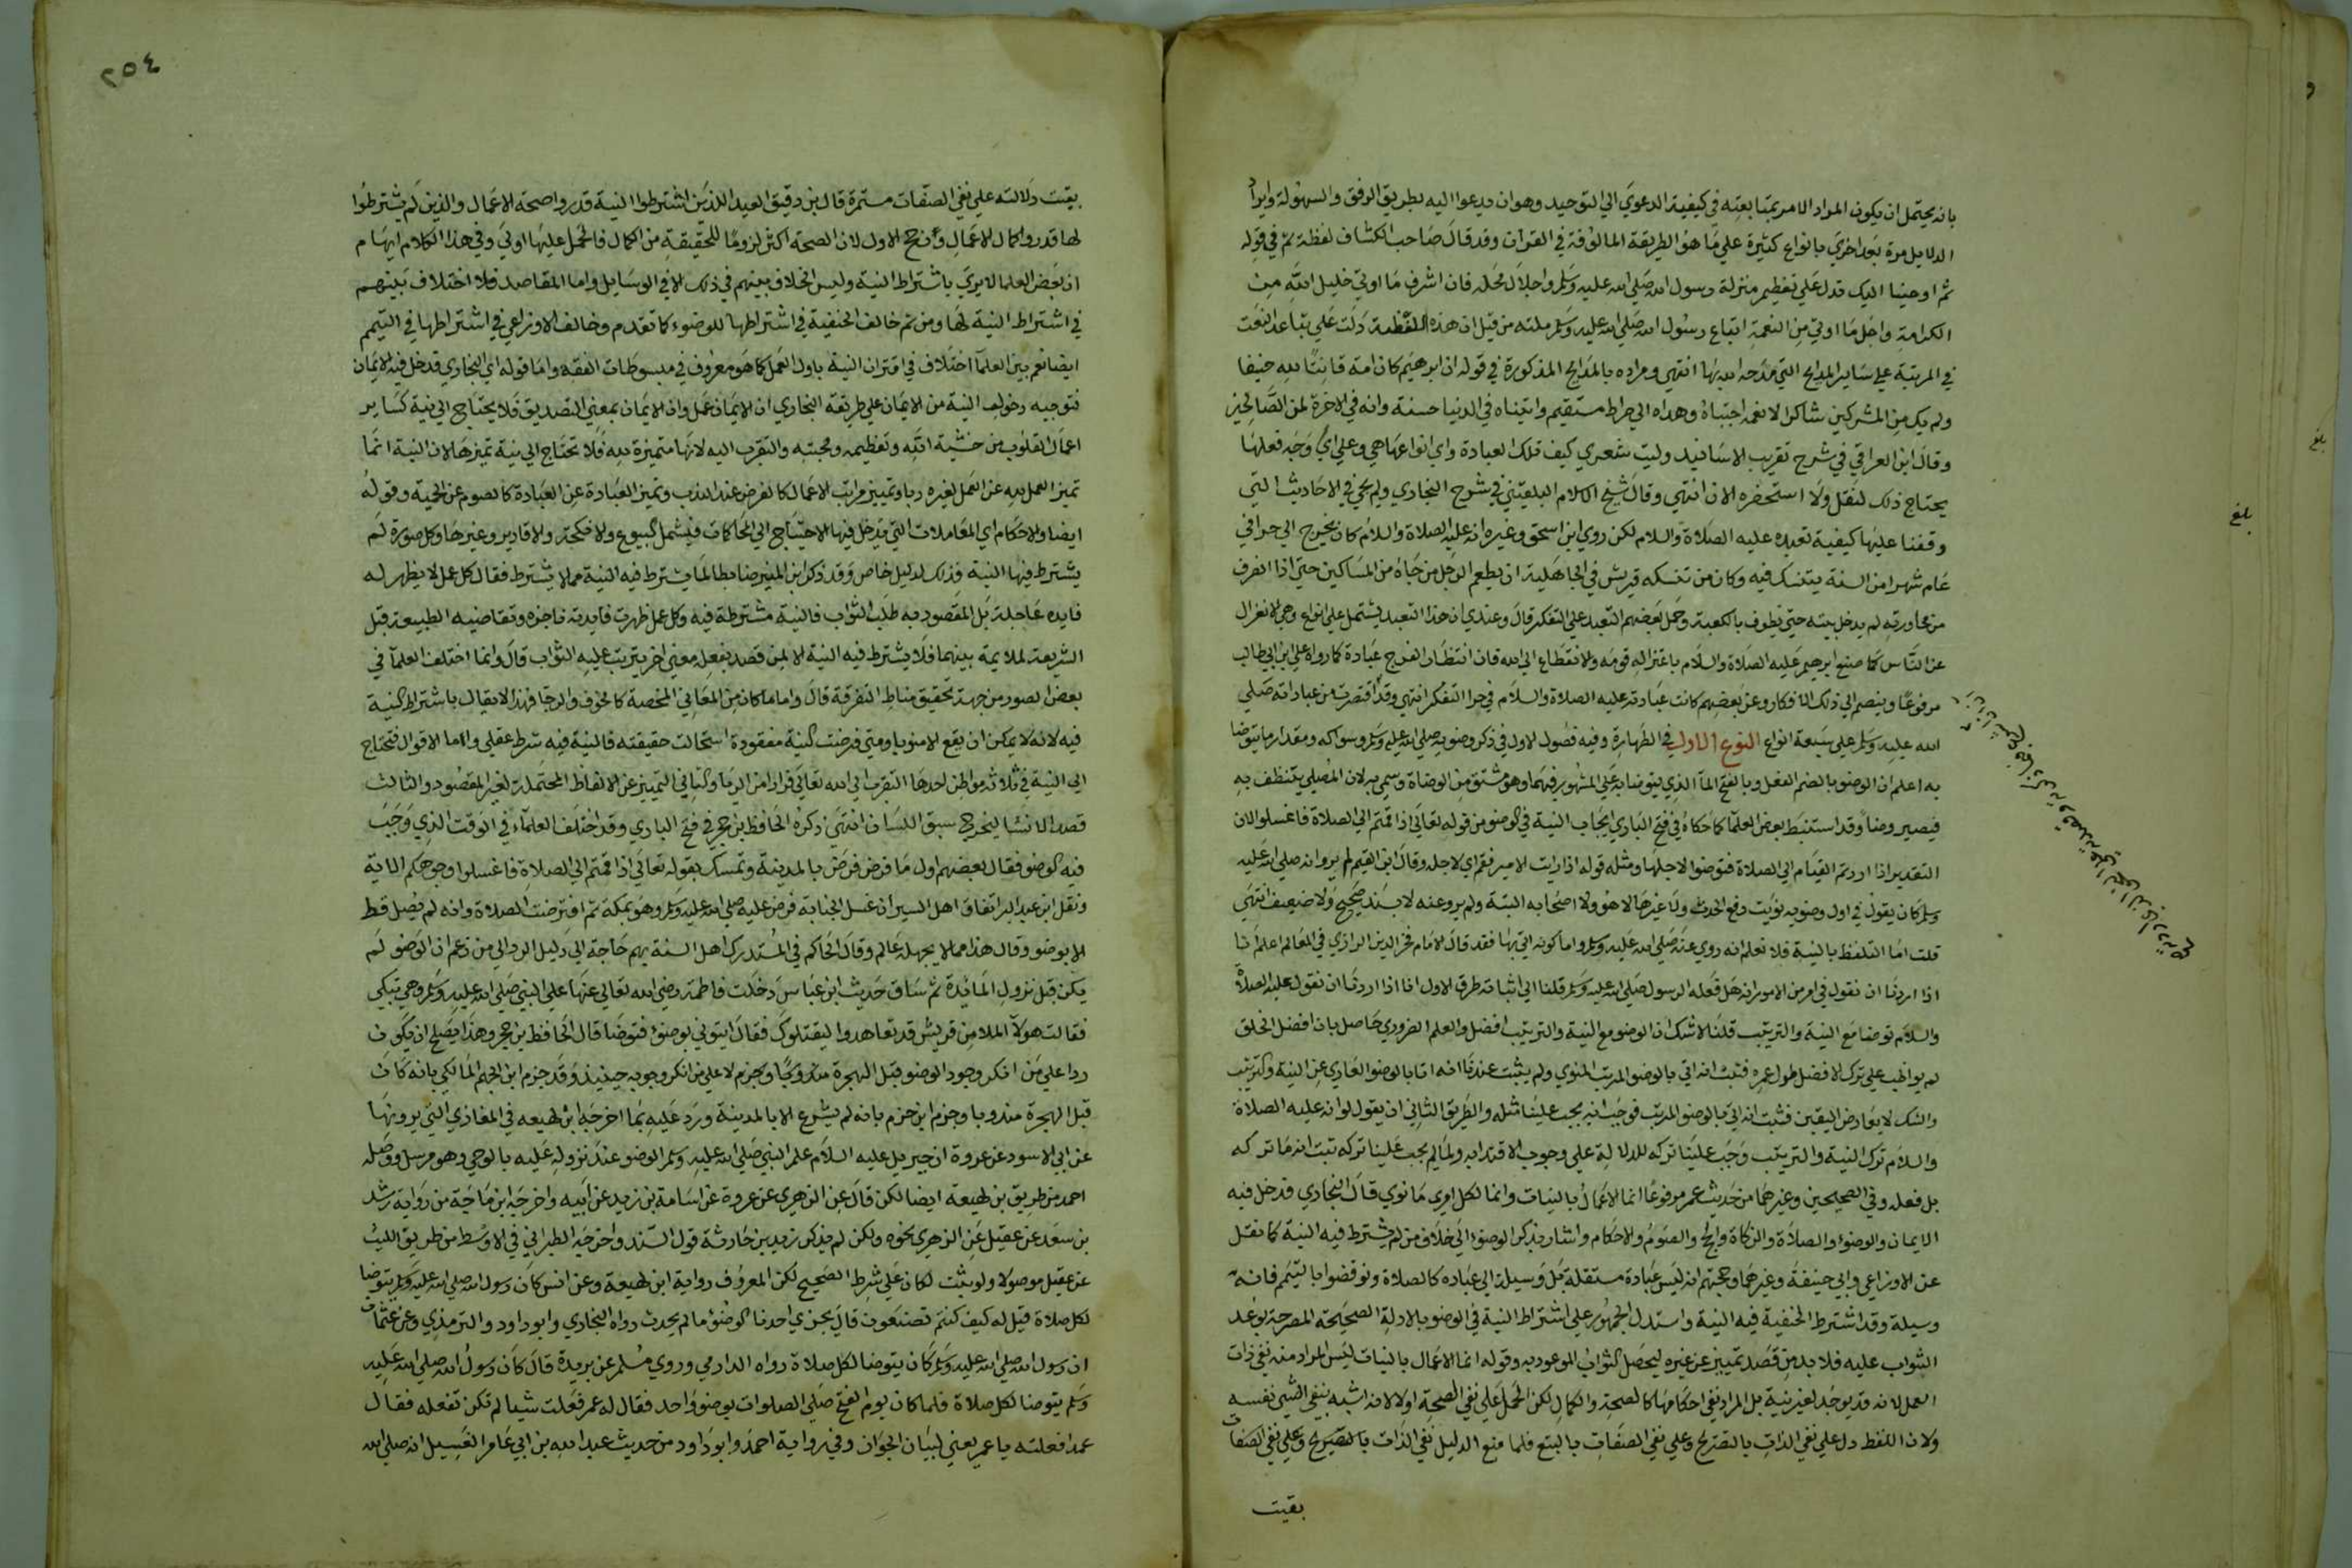 بانه يحتمل ان يكون المراد الامر بمتابعته في كيفية الدعوي الي التوحيد وهو ان يدعوا اليه بطريق الرفق والسهولة وايراد
الدلايل مرة بعد اخري بانواع كثيرة علي ما هو الطريقة المالوفة في القران وقد قال صاحب الكشاف لفظة ثم في قوله
ثم اوحينا اليك تدل علي تعظيم منزلة رسول الله صلي الله عليه وسلم واجلال محله فان اشرف ما اوتي خليل الله من
الكرامة واجل ما اوتي من النعمة اتباع رسول الله صلي الله عليه وسلم ملته من قبل ان هذه اللفظة دلت علي تباعد النعت
في المرتبة علي ساير المدايح التي مدحه الله بها انتهي ومراده بالمدايح المذكورة في قوله ان ابرهيم كان امة قانتا لله حنيفا
ولم يك من المشركين شاكرا لانعمه اجتباه وهداه الي صراط مستقيم واتيناه في الدنيا حسنة وانه في الاخرة لمن الصالحين
وقال ابن العراقي في شرح تقريب الاسانيد وليت شعري كيف تلك العبادة واي انواعها هي وعلي اي وجه فعلها
يحتاج ذلك لنقل ولا استحضره الان انتهي وقال شيخ الاسلام البلقيني في شرح البخاري ولم يجي في الاحاديث التي
وقفنا عليها كيفية تعبده عليه الصلاة والسلام لكن روي ابن اسحق وغيره انه عليه الصلاة والسلام كان يخرج الي حرا في
عام شهرا من السنة يتنسك فيه وكان من تنسكه قريش في الجاهلية ان يطعم الرجل من جاه من المساكين حتي اذا انصرف
من مجاورته لم يدخل بيته حتي يطوف بالكعبة وحمل بعضهم التعبد علي التفكر قال وعندي ان هذا التعبد يشتمل علي انواع وهي الانعزال
عن الناس كما صنع ابرهيم عليه الصلاة والسلام باعتزاله قومه والانقطاع الي الله فان انتظار الفرج عبادة كما رواه علي ابن ابي طالب
مرفوعا وينضم الي ذلك الافكار وعن بعضهم كانت عبادته عليه الصلاة والسلام في حرا التفكر انتهي وقد اقتصرت من عباداته صلي
الله عليه وسلم علي سبعة انواع النوع الاول في الطهارة وفيه فصول الاول في ذكر وضويه صلي الله عليه وسلم وسواكه ومقدار ما يتوضا
به اعلم ان الوضو بالضم الفعل وبالفتح الما الذي يتوضا به علي المشهور فيهما وهو مشتق من الوضاة وسمي به لان المصلي يتنظف به
فيصير وضيا وقد استنبط بعض العلما كما حكاه في فتح الباري ايجاب النية في الوضو من قوله تعالي اذا قمتم الي الصلاة فاغسلوا لان
التقدير اذا اردتم القيام الي الصلاة فتوضوا لاجلها ومثله قوله اذا رايت الامير فقم اي لاجله وقال ابن القيم لم يرو انه صلي الله عليه
وسلم كان يقول في اول وضويه نويت رفع الحدث ولا غيرها لا هو ولا اصحابه البتة ولم يرو عنه لا بسند صحيح ولا ضعيف انتهي
قلت اما التلفظ بالنية فلا نعلم انه روي عنه صلي الله عليه وسلم واما كونه اتي بها فقد قال الامام فخر الدين الرازي في المعالم اعلم انا
اذا اردنا ان نقول في امر من الامور انه هل فعله الرسول صلي الله عليه وسلم قلنا الي اثباته طرق الاول انا اذا اردنا ان نقول عليه الصلاة
والسلام توضا مع النية والترتيب قلنا لا شك ان الوضو مع النية والترتيب افضل والعلم الضروري حاصل بان افضل الخلق
لم يواظب علي ترك الافضل طول عمره فثبت انه اتي بالوضو المرتب المنوي ولم يثبت عندنا انه اتا بالوضو العاري عن النية والترتيب
والشك لا يعارض اليقين فثبت انه اتي بالوضو المرتب فوجب ان يجب علينا مثله والطريق الثاني ان يقول لو انه عليه الصلاة
والسلام ترك النية والترتيب وجب علينا تركه للدلالة علي وجوب الاقتدا به ولما لم يجب علينا تركه ثبت انه ما تركه
بل فعله وفي الصحيحين وغيرهما من حديث عمر مرفوعا انما الاعمال بالنيات وانما لكل امري ما نوي قال البخاري فدخل فيه
الايمان والوضو والصلاة والزكاة والحج والصوم والاحكام واشار بذكر الوضو الي خلاف من لم يشترط فيه النية كما نقل
عن الاوزاعي وابي حنيفة وغيرهما وحجتهم انه ليس عبادة مستقلة بل وسيلة الي عبادة كالصلاة ونوقضوا بالتيمم فانه
وسيلة وقد اشترط الحنفية فيه النية واستدل الجمهور علي اشتراط النية في الوضو بالادلة الصحيحة المصرحة بوعد
الثواب عليه فلا بد من قصد تمييز عن غيره ليحصل الثواب الموعود به وقوله انما الاعمال بالنيات ليس المراد منه نفي ذات
العمل لانه قد يوجد لغير نية بل المراد نفي احكامها كالصحة والكمال لكن الحمل علي نفي الصحة اولا لانه اشبه بنفي الشي نفسه
ولان اللفظ دل علي نفي الذات بالتصريح وعلي نفي الصفات بالتبع فلما منع الدليل نفي الذات بالتصريح وعلي نفي الصفات
بقيت
بلغ
٢٥٤
بقيت دلالته علي نفي الصفات مستمرة قال بن دقيق العيد اللذين اشترطوا النية قدروا صحة الاعمال والذين لم يشترطوا
لها قدروا كمال الاعمال ورجح الاول لان الصحة اكثر لزوما للحقيقة من الكمال فالحمل عليها اولي وفي هذا الكلام ايهام
ان بعض العلما لا يري باشتراط النية وليس الخلاف بينهم في ذلك الا في الوسايل واما المقاصد فلا اختلاف بينهم
في اشتراط النية لها ومن ثم خالف الحنفية في اشتراطها للوضوء كما تقدم وخالف الاوزاعي في اشتراطها في التيمم
ايضا نعم بين العلما اختلاف في اقتران النية باول العمل كما هو معروف في مبسوطات الفقه واما قوله اي البخاري فدخل فيه الايمان
فتوجيه دخول النية من الايمان علي طريقة البخاري ان الايمان عمل وان الايمان بمعني التصديق فلا يحتاج الي نية كساير
اعمال القلوب من خشية الله وتعظيمه ومحبته والتقرب اليه لانها متميزة لله فلا تحتاج الي نية تميزها لان النية انما
تميز العمل لله عن العمل لغيره ريا وتمييز مراتب الاعمال كالفرض عند الندب وتميز العبادة عن العبادة كالصوم عن الحمية وقوله
ايضا والاحكام اي المعاملات التي يدخل فيها الاحتياج الي المحاكمات فيشمل البيوع والانكحة والاقارير وغيرها وكل صورة لم
يشترط فيها النية فذلك لدليل خاص وقد ذكر ابن المنير ضابطا لما يشترط فيه النية مما لا يشترط فقال كل عمل لا يظهر له
فايدة عاجلة بل المقصود به طلب الثواب فالنية مشترطة فيه وكل عمل ظهرت فايدته ناجزة وتقاضيه الطبيعة قبل
الشريعة لملايمة بينهما فلا يشترط فيه النية الا لمن قصد بفعله معني اخر يترتب عليه الثواب قال وانما اختلف العلما في
بعض الصور من جهة تحقيق مناط التفرقة قال واما ما كان من المعاني المحضة كالخوف والرجا فهذا لا يقال باشتراط النية
فيه لانه لا يمكن ان يقع الا منويا ومتي فرضت النية مفقودة استحالت حقيقته فالنية فيه شرط عقلي واما الاقوال فتحتاج
الي النية في ثلاثة مواطن احدها التقرب الي الله تعالي فرارا من الريا والثاني التمييز عن الالفاظ المحتملة لغير المقصود والثالث
قصد الانشا ليخرج سبق اللسان انتهي ذكره الحافظ بن حجر في فتح الباري وقد اختلف العلماء في الوقت الذي وجب
فيه الوضو فقال بعضهم اول ما فرض فرض بالمدينة وتمسك بقوله تعالي اذا قمتم الي الصلاة فاغسلوا وجوهكم الاية
ونقل ابن عبد البر اتفاق اهل السير ان غسل الجنابة فرض عليه صلي الله عليه وسلم وهو بمكة ثم افترضت الصلاة وانه لم يصل قط
الا بوضو وقال هذا مما لا يجهله عالم وقال الحاكم في المستدرك اهل السنة بهم حاجة الي دليل الرد الي من زعم ان الوضو لم
يكن قبل نزول المائدة ثم ساق حديث ابن عباس دخلت فاطمة رضي الله تعالي عنها علي النبي صلي الله عليه وسلم وهي تبكي
فقالت هولآ الملا من قريش قد تعاهدوا ليقتلوك فقال ايتوني بوضوء فتوضا قال الحافظ بن حجر وهذا يصلح ان يكون
ردا علي من انكر وجود الوضو قبل الهجرة لا علي من انكر وجوبه حينيذ وقد جزم ابن الجهم المالكي بانه كان
قبل الهجرة مندوبا وجزم ابن حزم بانه لم يشرع الا بالمدينة ورد عليه بما اخرجه ابن لهيعه في المغازي التي يرويها
عن ابي الاسود عن عروة ان جبريل عليه السلام علم النبي صلي الله عليه وسلم الوضو عند نزوله عليه بالوحي وهو مرسل ووصله
احمد من طريق بن لهيعة ايضا لكن قال عن الزهري عن عروة عن اسامة بن زيد عن ابيه واخرجه ابن ماجة من رواية رشد
بن سعد عن عقيل عن الزهري نحوه ولكن لم يذكر زيد بن حارثة في السند واخرجه الطبراني في الاوسط من طريق الليث
عن عقيل موصولا ولو ثبت لكان علي شرط الصحيح لكن المعروف رواية ابن لهيعة وعن انس كان رسول الله صلي الله عليه وسلم يتوضا
لكل صلاة قيل له كيف كنتم تصنعون قال يجزي احدنا الوضوء ما لم يحدث رواه البخاري وابو داود والترمذي وعن عثمان
ان رسول الله صلي الله عليه وسلم كان يتوضا لكل صلاة رواه الدارمي وروي مسلم عن بريدة قال كان رسول الله صلي الله عليه
وسلم يتوضا لكل صلاة فلما كان يوم الفتح صلي الصلوات بوضو واحد فقال له عمر فعلت شيا لم تكن تفعله فقال
عمدا فعلته يا عمر يعني لبيان الجواز وفي رواية احمد وابو داود من حديث عبد الله بن ابي عامر الغسيل انه صلي الله